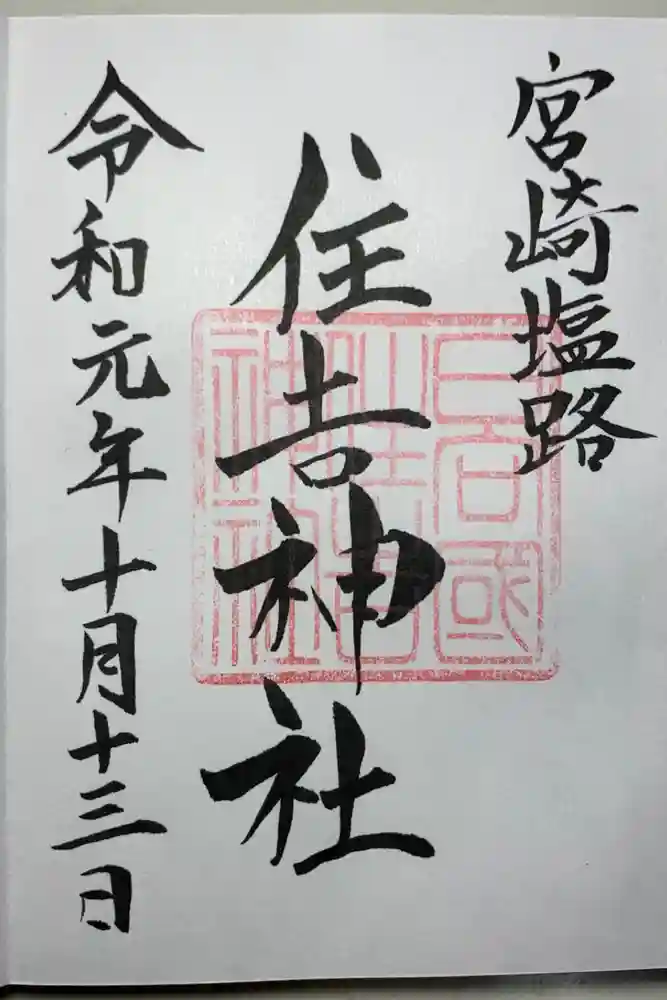 宮崎塩路
住吉神社
令和元年十月十三日
日向國
住吉
神社